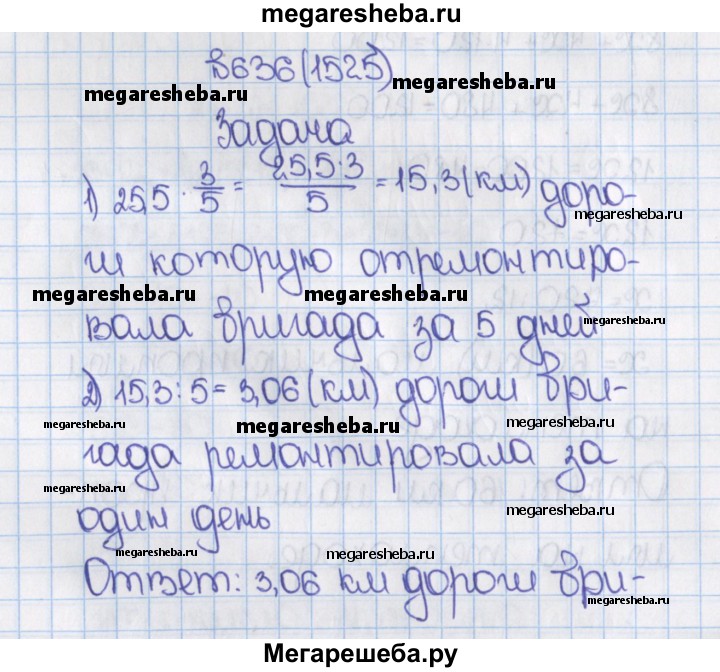 megaresheba.ru
В636(1525)
megaresheba.ru megaresheba.ru
Задача
1) 25,5 · 3/5 = 25,5·3/5 = 15,3(км) доро-
megaresheba.ru
ги которую отремонтиро-
megaresheba.ru megaresheba.ru
вала бригада за 5 дней
megaresheba.ru
2) 15,3 : 5 = 3,06 (км) дороги бри-
megaresheba.ru megaresheba.ru megaresheba.ru
гада ремонтировала за
megaresheba.ru
один день
megaresheba.ru
megaresheba.ru megaresheba.ru
Ответ: 3,06 км дороги бри-
megaresheba.ru
Мегарешеба.ру